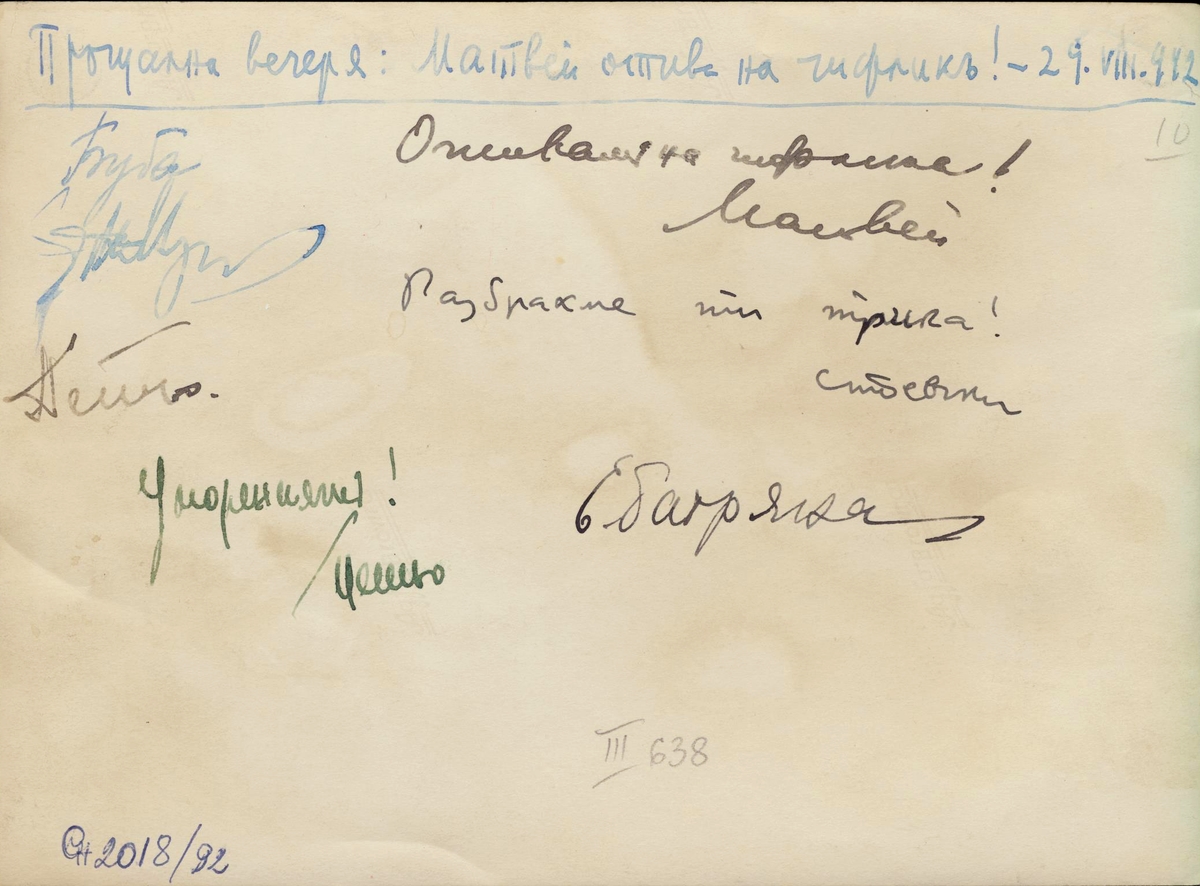 Прощална вечеря: Матвей отива на чифликъ! – 29. VIII. 942
10
Буба
Отивамъ на чифлика!
Матвей
Разбрахме ти трика!
Стоевски
Петьо.
Умореният!
Пешо
Е Багряна
III 638
Сн 2018/92